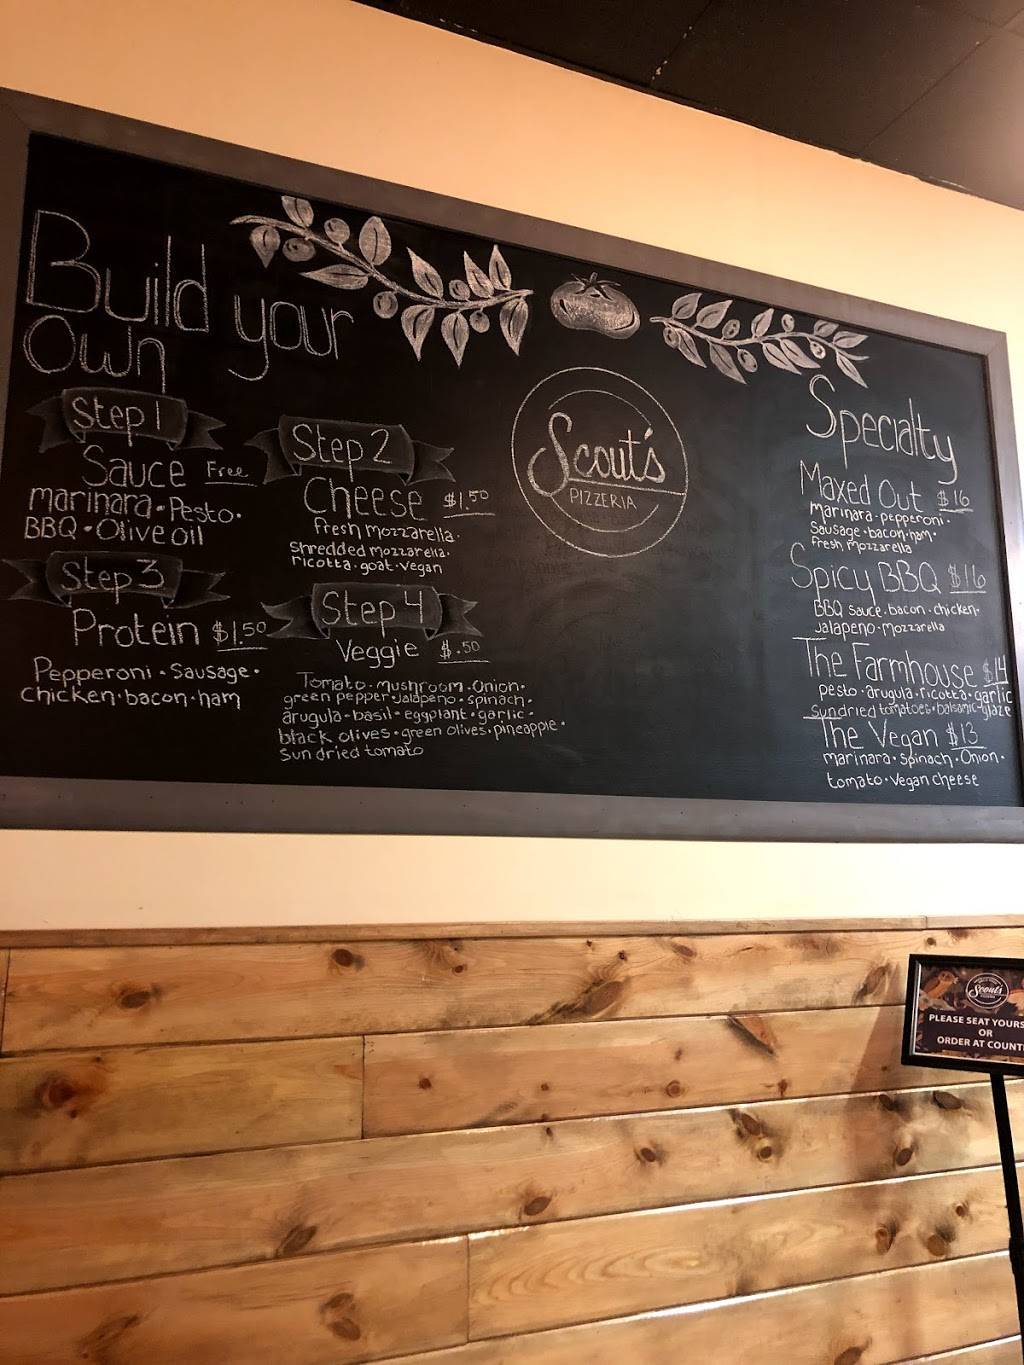 Build your
Own
Step 1
Sauce Free
marinara · Pesto ·
BBQ · Olive oil
Step 2
Cheese $1.50
fresh mozzarella ·
shredded mozzarella ·
ricotta · goat · vegan
Step 3
Protein $1.50
Pepperoni · Sausage ·
chicken · bacon · ham
Step 4
Veggie $.50
Tomato · mushroom · Onion ·
green pepper · jalapeno · spinach ·
arugula · basil · eggplant · garlic ·
black olives · green olives · pineapple ·
sun dried tomato
Scout's
PIZZERIA
Specialty
Maxed Out $16
marinara · pepperoni ·
Sausage · bacon · ham ·
fresh mozzarella
Spicy BBQ $16
BBQ sauce · bacon · chicken ·
Jalapeno · Mozzarella
The Farmhouse $14
pesto · arugula · ricotta · garlic
sundried tomatoes · balsamic glaze
The Vegan $13
marinara · spinach · Onion ·
tomato · vegan cheese
Scout's
PLEASE SEAT YOURS
OR
ORDER AT COUNT